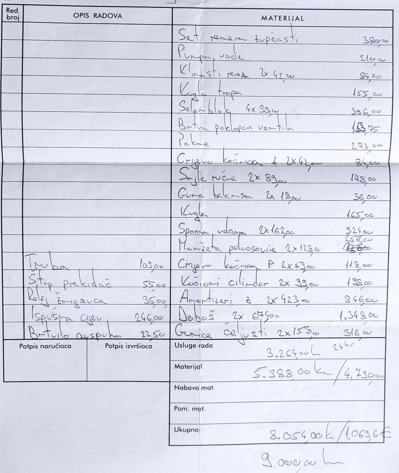 Red. broj OPIS RADOVA MATERIJAL
Set remena zupčasti 380,00
Pumpa vode 210,00
Klinasti remen 2x 42,00 84,00
Kugla trapa 155,00
Selenblok 4x 99,00 396,00
Brtva poklopca ventila
Pakne 273,00
Crijevo kočiono 2x 42,00 84,00
Sajle ručne 2x 89,00 178,00
Guma balansa 2x 18,00 36,00
Kugla 165,00
Spona 2x 162,00 324,00
Manžeta poluosovine 2x
Truba 109,00 Crijevo kočiono P 2x 59,00 118,00
Stop prekidač 55,00 Kočioni cilindar 2x 99,00 198,00
Relej žmigavca 35,00 Amortizeri z 2x 423,00 846,00
Ispušna cijev 246,00 Doboš 2x 674,00 1.348,00
Brtvilo auspuha 22,50 Gumica čeljusti 2x 158,00 316,00
Potpis naručioca Potpis izvršioca Usluge rada 3.264,00
Materijal 5.388,00 kn / 4.790,00
Nabava mat.
Pom. mat.
Ukupno: 8.054,00 kn / 1.069,6 €
9.000,00 kn